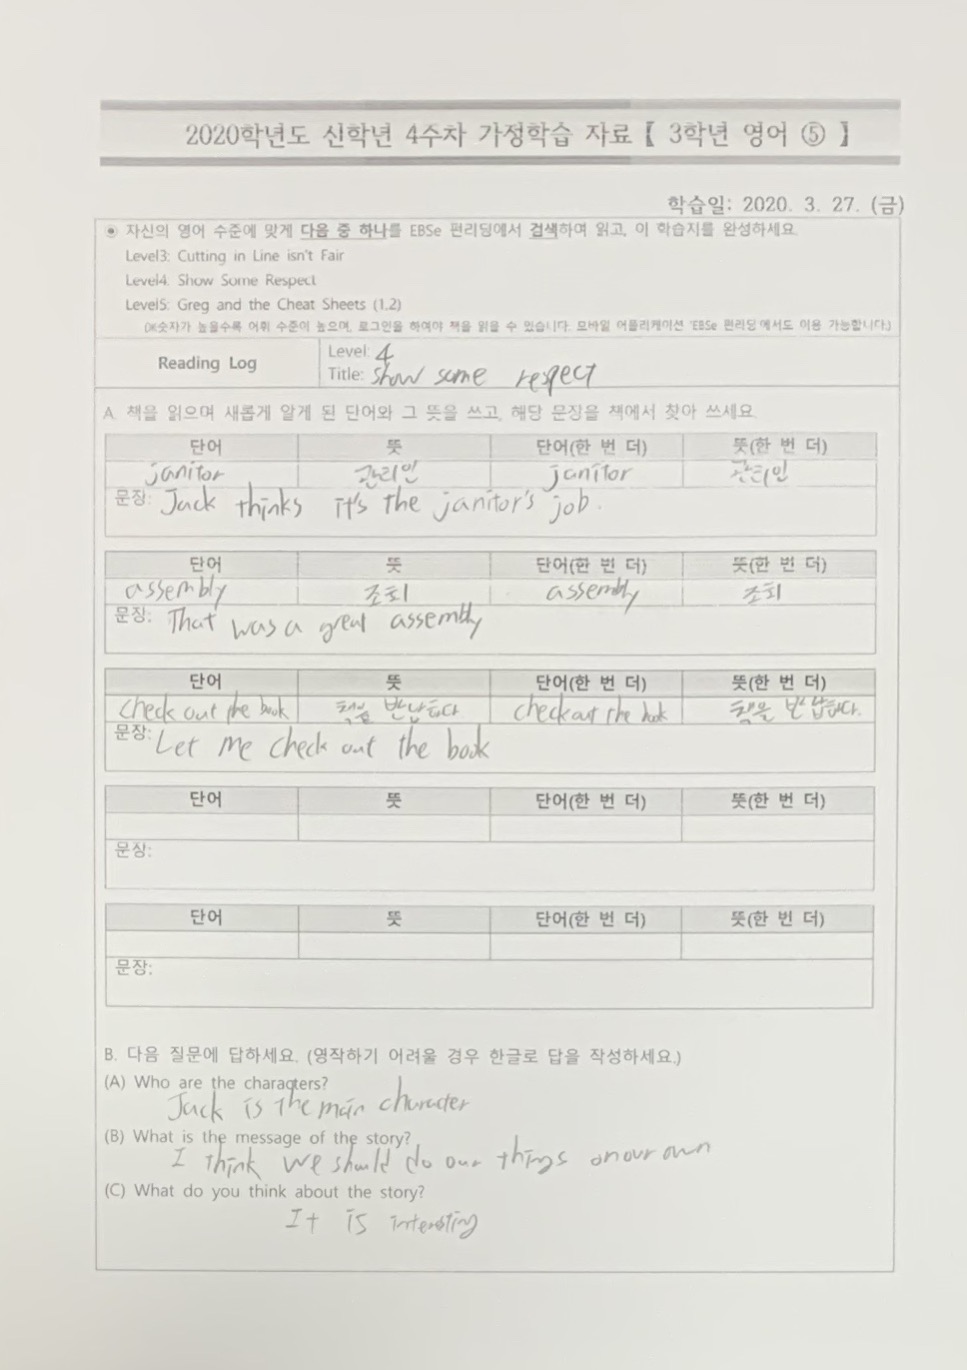 2020학년도 신학년 4주차 가정학습 자료【 3학년 영어 ⑤ 】
학습일: 2020. 3. 27. (금)
◉ 자신의 영어 수준에 맞게 다음 중 하나를 EBSe 펀리딩에서 검색하여 읽고, 이 학습지를 완성하세요.
Level3: Cutting in Line isn't Fair
Level4. Show Some Respect
Level5: Greg and the Cheat Sheets (1.2)
(※숫자가 높을수록 어휘 수준이 높으며, 로그인을 하여야 책을 읽을 수 있습니다. 모바일 어플리케이션 'EBSe 펀리딩'에서도 이용 가능합니다.)
Reading Log
Level: 4
Title: show some respect
A. 책을 읽으며 새롭게 알게 된 단어와 그 뜻을 쓰고, 해당 문장을 책에서 찾아 쓰세요.
단어 뜻 단어(한 번 더) 뜻(한 번 더)
janitor 관리인 janitor 관리인
문장: Jack thinks it's the janitor's job.
단어 뜻 단어(한 번 더) 뜻(한 번 더)
assembly 조회 assembly 조회
문장: That was a great assembly
단어 뜻 단어(한 번 더) 뜻(한 번 더)
check out the book 책을 반납하다 check out the book 책을 반납하다.
문장: Let me check out the book
단어 뜻 단어(한 번 더) 뜻(한 번 더)
문장:
단어 뜻 단어(한 번 더) 뜻(한 번 더)
문장:
B. 다음 질문에 답하세요. (영작하기 어려울 경우 한글로 답을 작성하세요.)
(A) Who are the characters?
Jack is the main character
(B) What is the message of the story?
I think we should do our things on our own
(C) What do you think about the story?
It is intersting